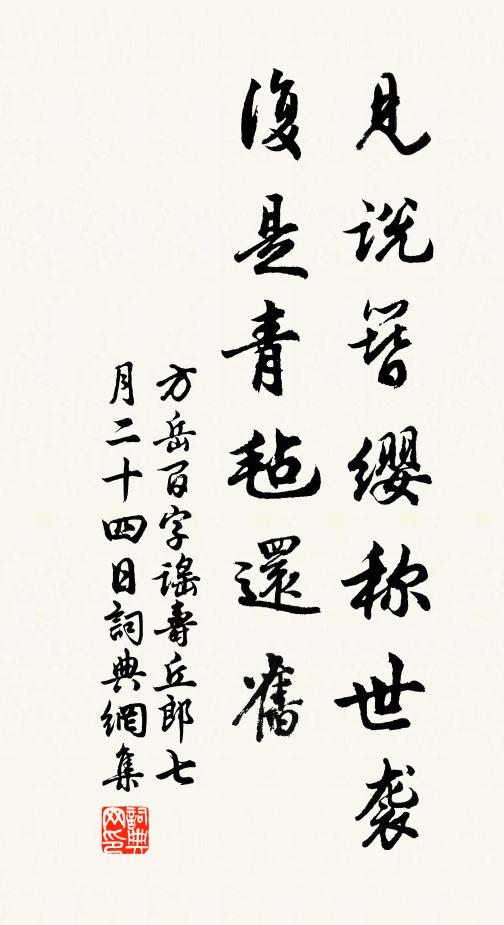 見説簪纓称世袭
復是青毡還舊
方岳百字謠壽丘郎七
月二十四日詞典網集
詞典
网印